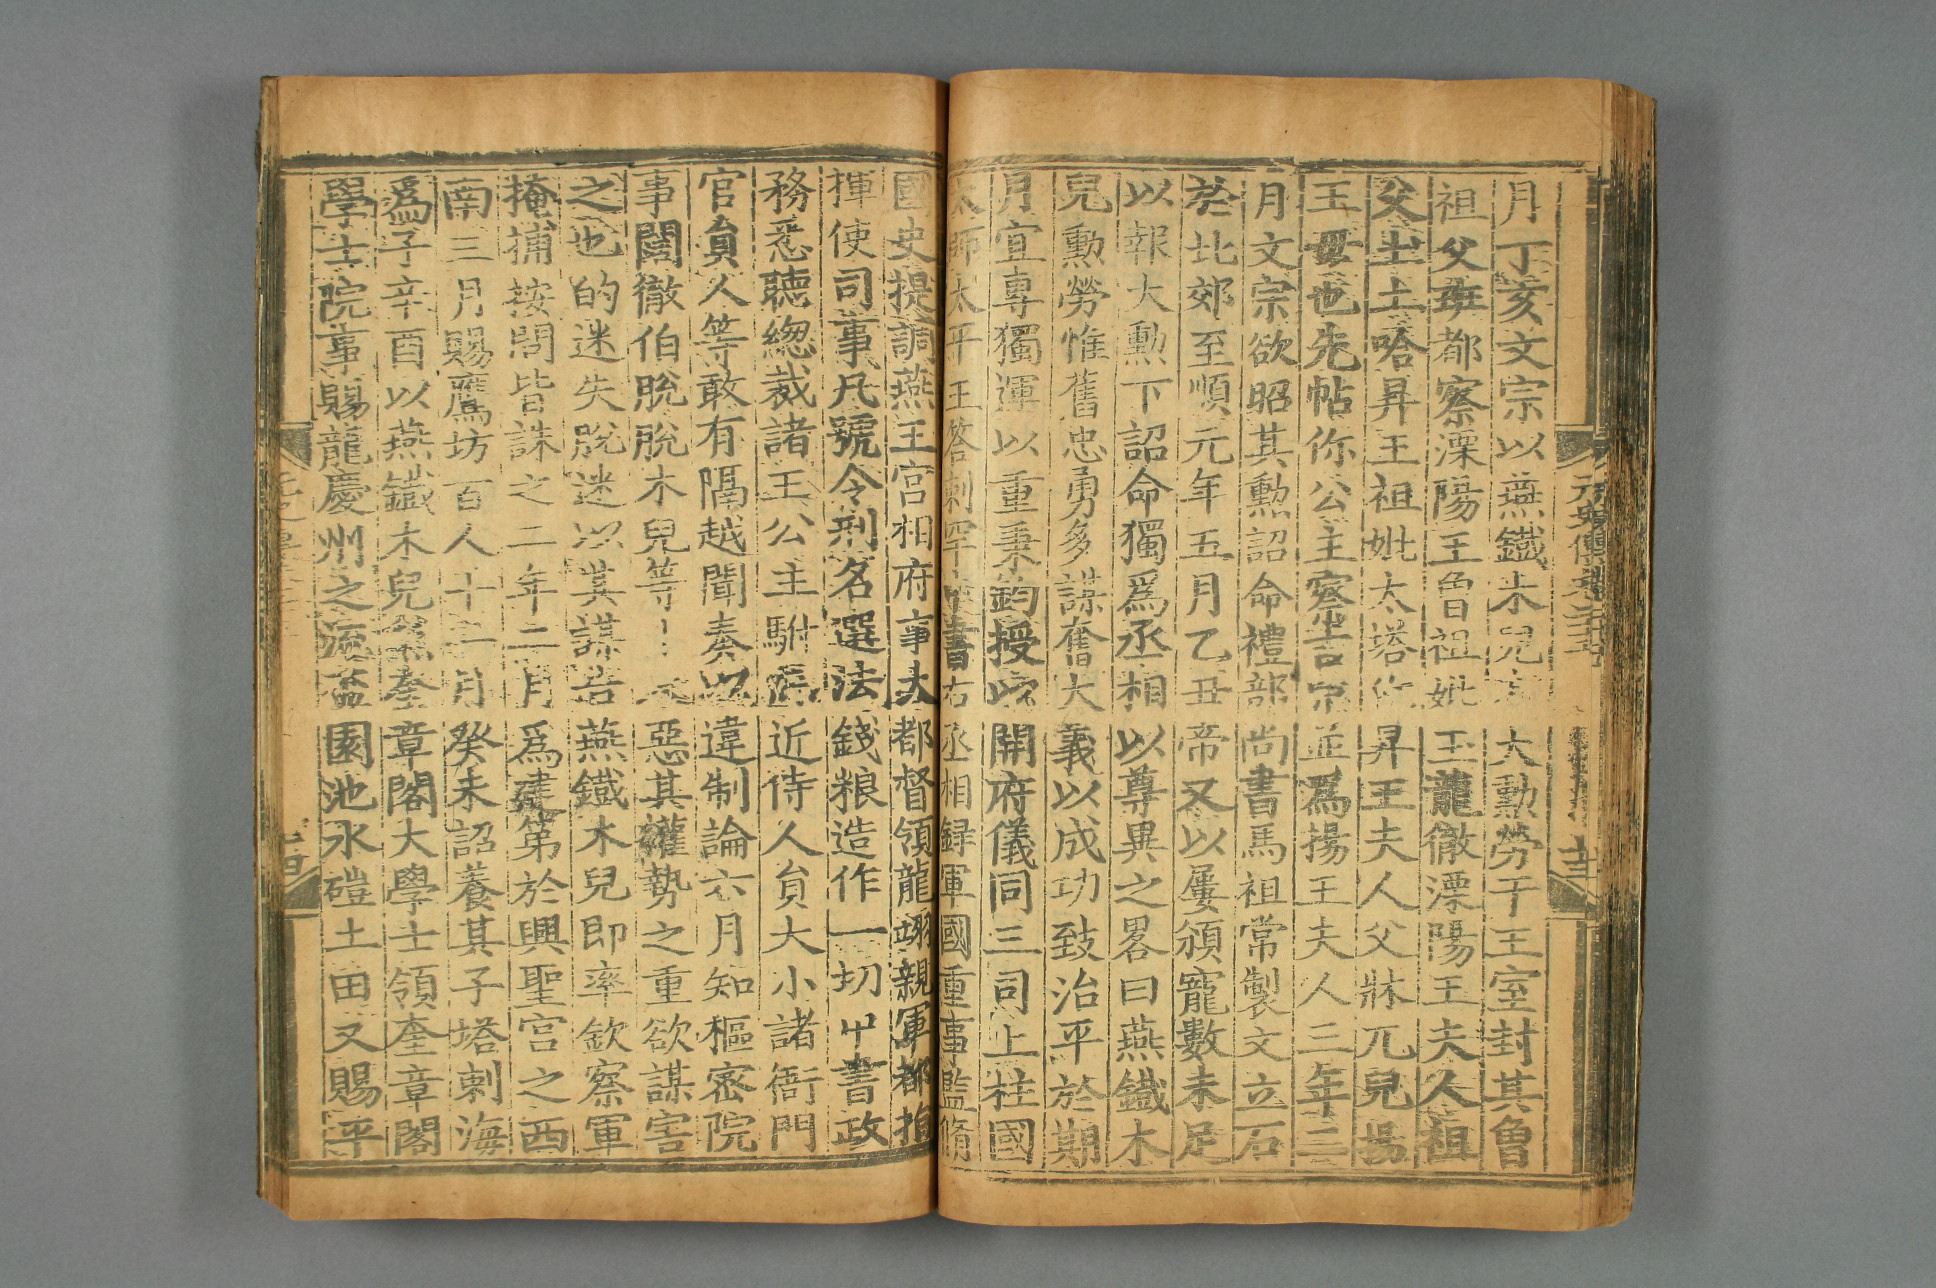 月丁亥文宗以燕鐵木兒有大勳勞于王室封其曾
祖父班都察溧陽王曾祖妣玉龍徹溧陽王夫人祖
父土土哈昇王祖妣太塔你昇王夫人父牀兀兒揚
王母也先帖你公主察吉兒並爲揚王夫人三年二
月文宗欲昭其勳詔命禮部尚書馬祖常製文立石
於北郊至順元年五月乙丑帝又以屢頒寵數未足
以報大勳下詔命獨爲丞相以尊異之畧曰燕鐵木
兒勳勞惟舊忠勇多謀奮大義以成功致治平於期
月宜專獨運以重秉鈞授以開府儀同三司上柱國
太師太平王答剌罕中書右丞相録軍國重事監脩
國史提調燕王宮相府事大都督領龍翊親軍都指
揮使司事凡號令刑名選法錢粮造作一切中書政
務悉聽緫裁諸王公主駙馬近侍人貟大小諸衙門
官貟人等敢有隔越聞奏以違制論六月知樞密院
事闊徹伯脫脫木兒等十人惡其權勢之重欲謀害
之也的迷失脫迷以其謀告燕鐵木兒即率欽察軍
掩捕按問皆誅之二年二月爲建第於興聖宮之西
南三月賜鷹坊百人十二月癸未詔養其子塔剌海
爲子辛酉以燕鐵木兒兼奎章閣大學士領奎章閣
學士院事賜龍慶州之流盃園池水磑土田又賜平